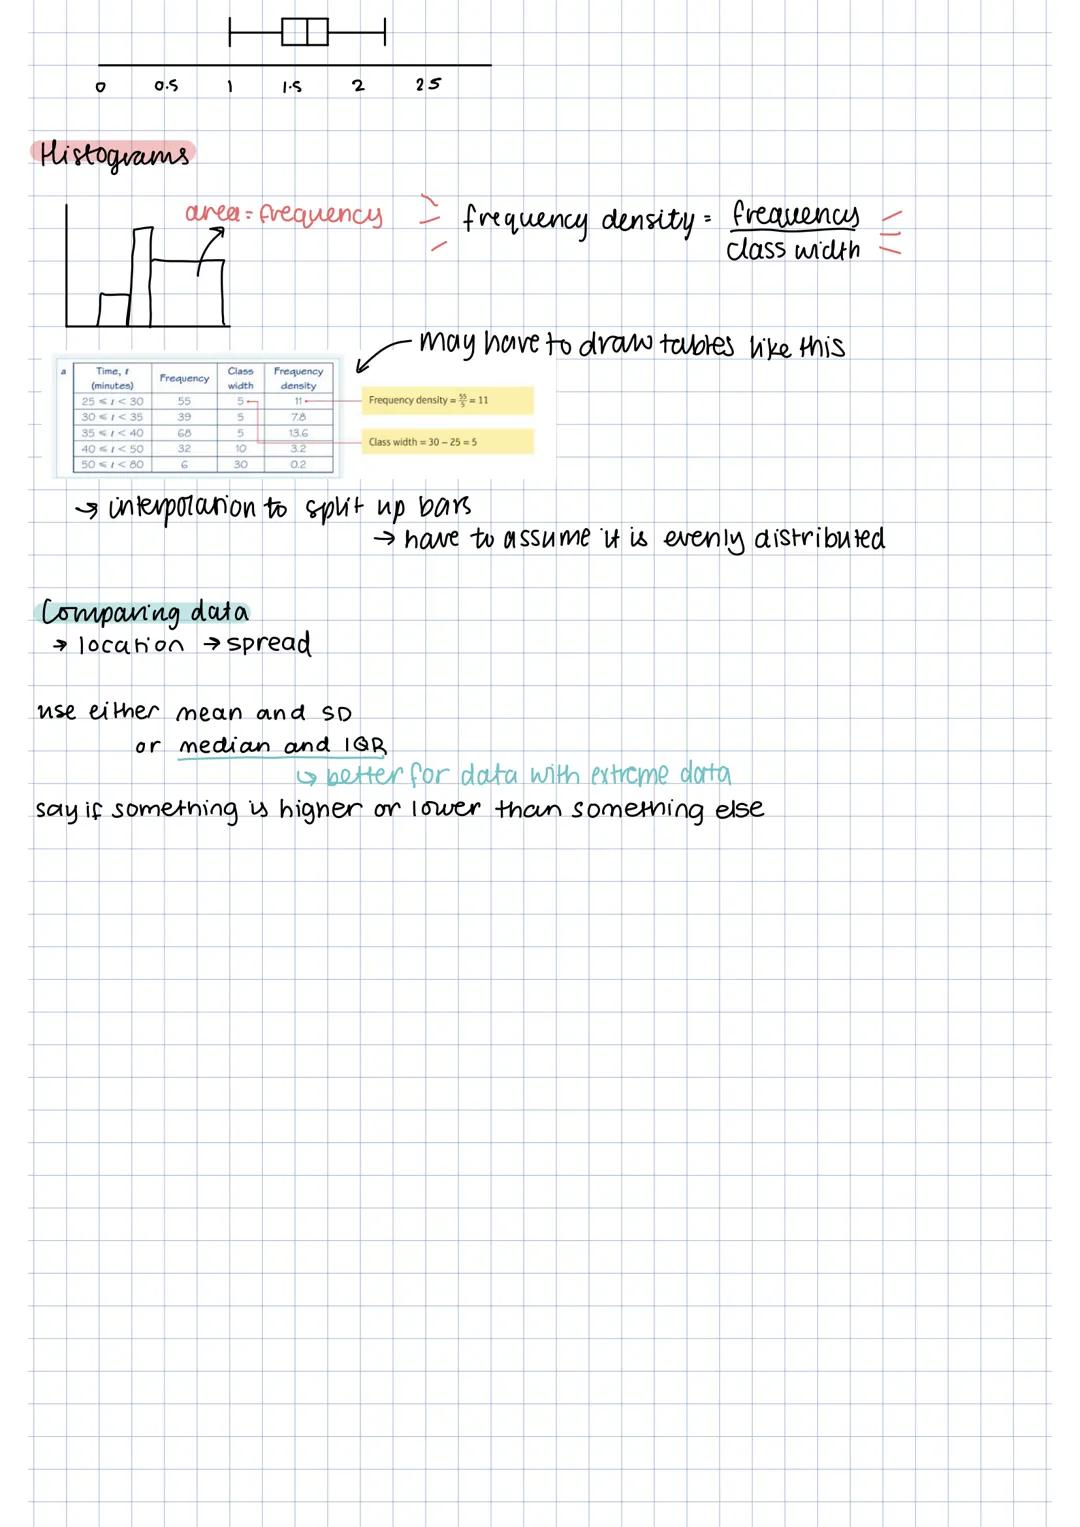 0 0.5 1 1.5 2 25
Histograms
area = frequency
frequency density = frequency
class width
may have to draw tables like this
a
Time, t (minutes) Frequency Class width Frequency density
25 ≤ t < 30 55 5 11
30 ≤ t < 35 39 5 7.8
35 ≤ t < 40 68 5 13.6
40 ≤ t < 50 32 10 3.2
50 ≤ t < 80 6 30 0.2
Frequency density = 55/5 = 11
Class width = 30 – 25 = 5
→ interpolation to split up bars
→ have to assume it is evenly distributed
Comparing data
→ location → spread
use either mean and SD
or median and IQR
↳ better for data with extreme data
say if something is higher or lower than something else